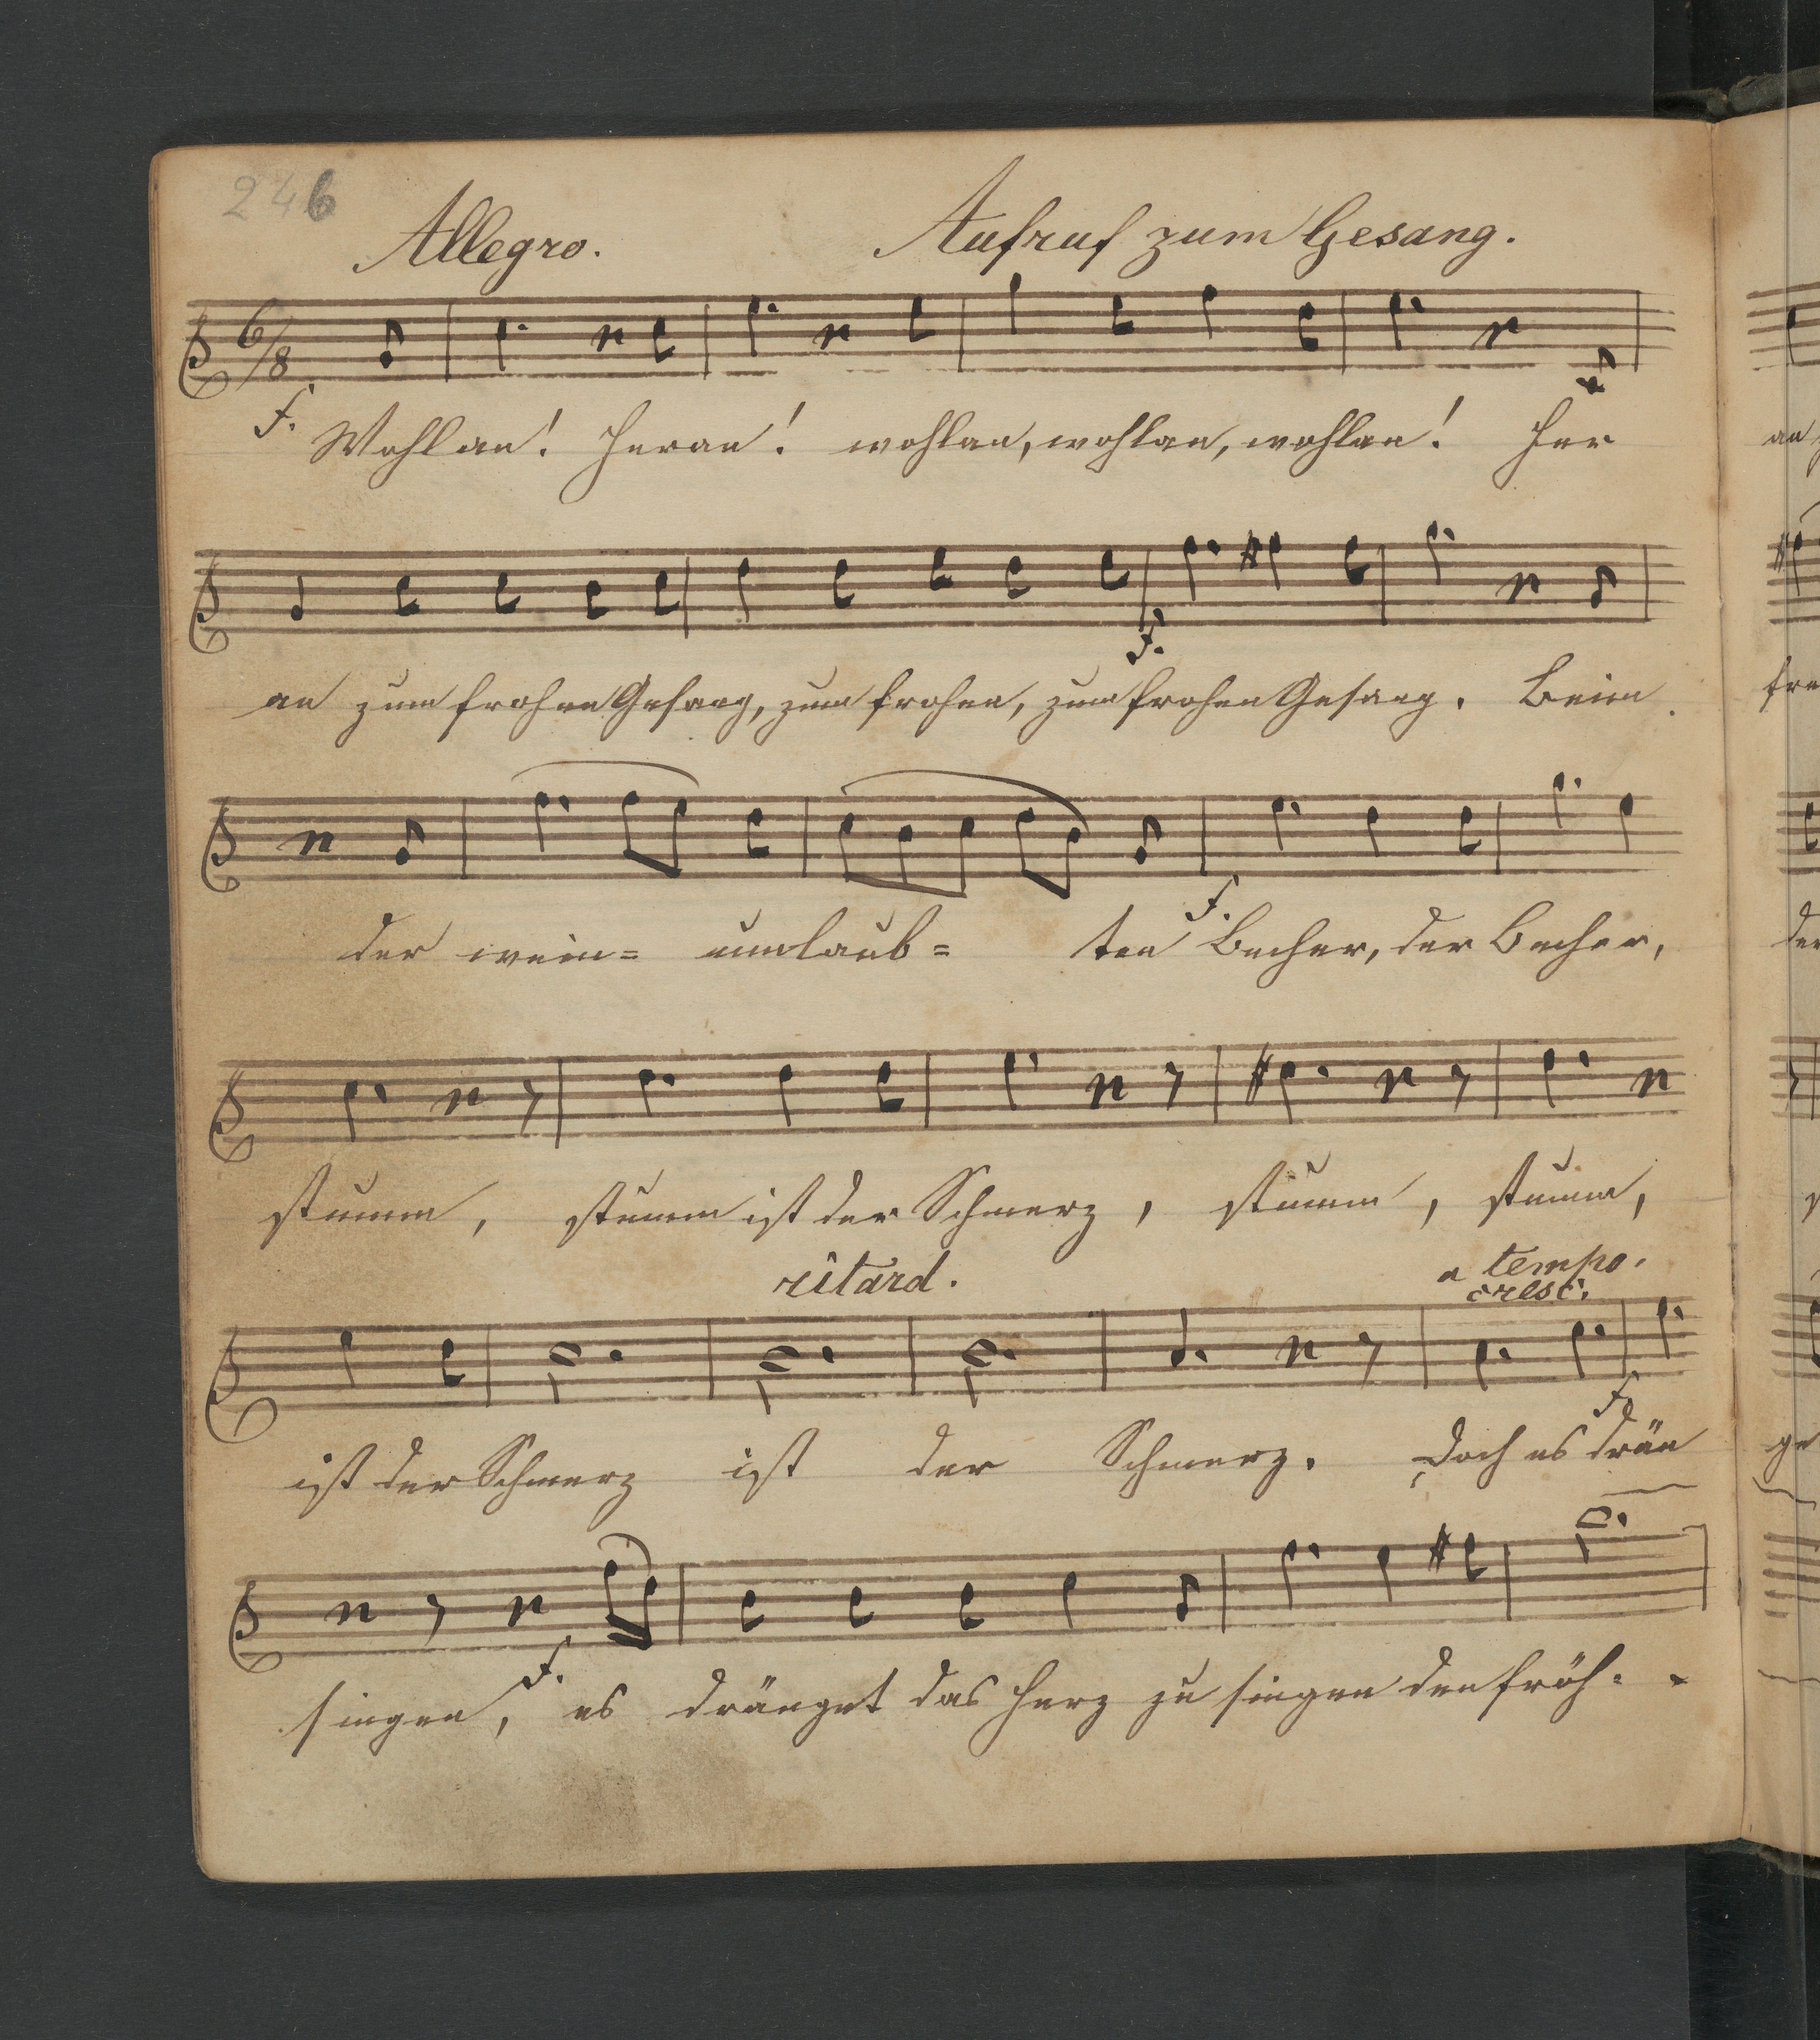 246
Allegro. Aufruf zum Gesang.
6/8
f. Wohlan! Heran! wohlan, wohlan, wohlan! Her
f.
an zum frohen Gesang, zum frohen, zum frohen Gesang. Beim
f.
der wein= umlaub= ten Becher, der Becher,
stumm, stumm ist der Schmerz, stumm, stumm,
ritard. a tempo.
cresc.
f.
ist der Schmerz ist der Schmerz. Doch es drän
f.
singen, es dränget das Herz zu singen den fröh=